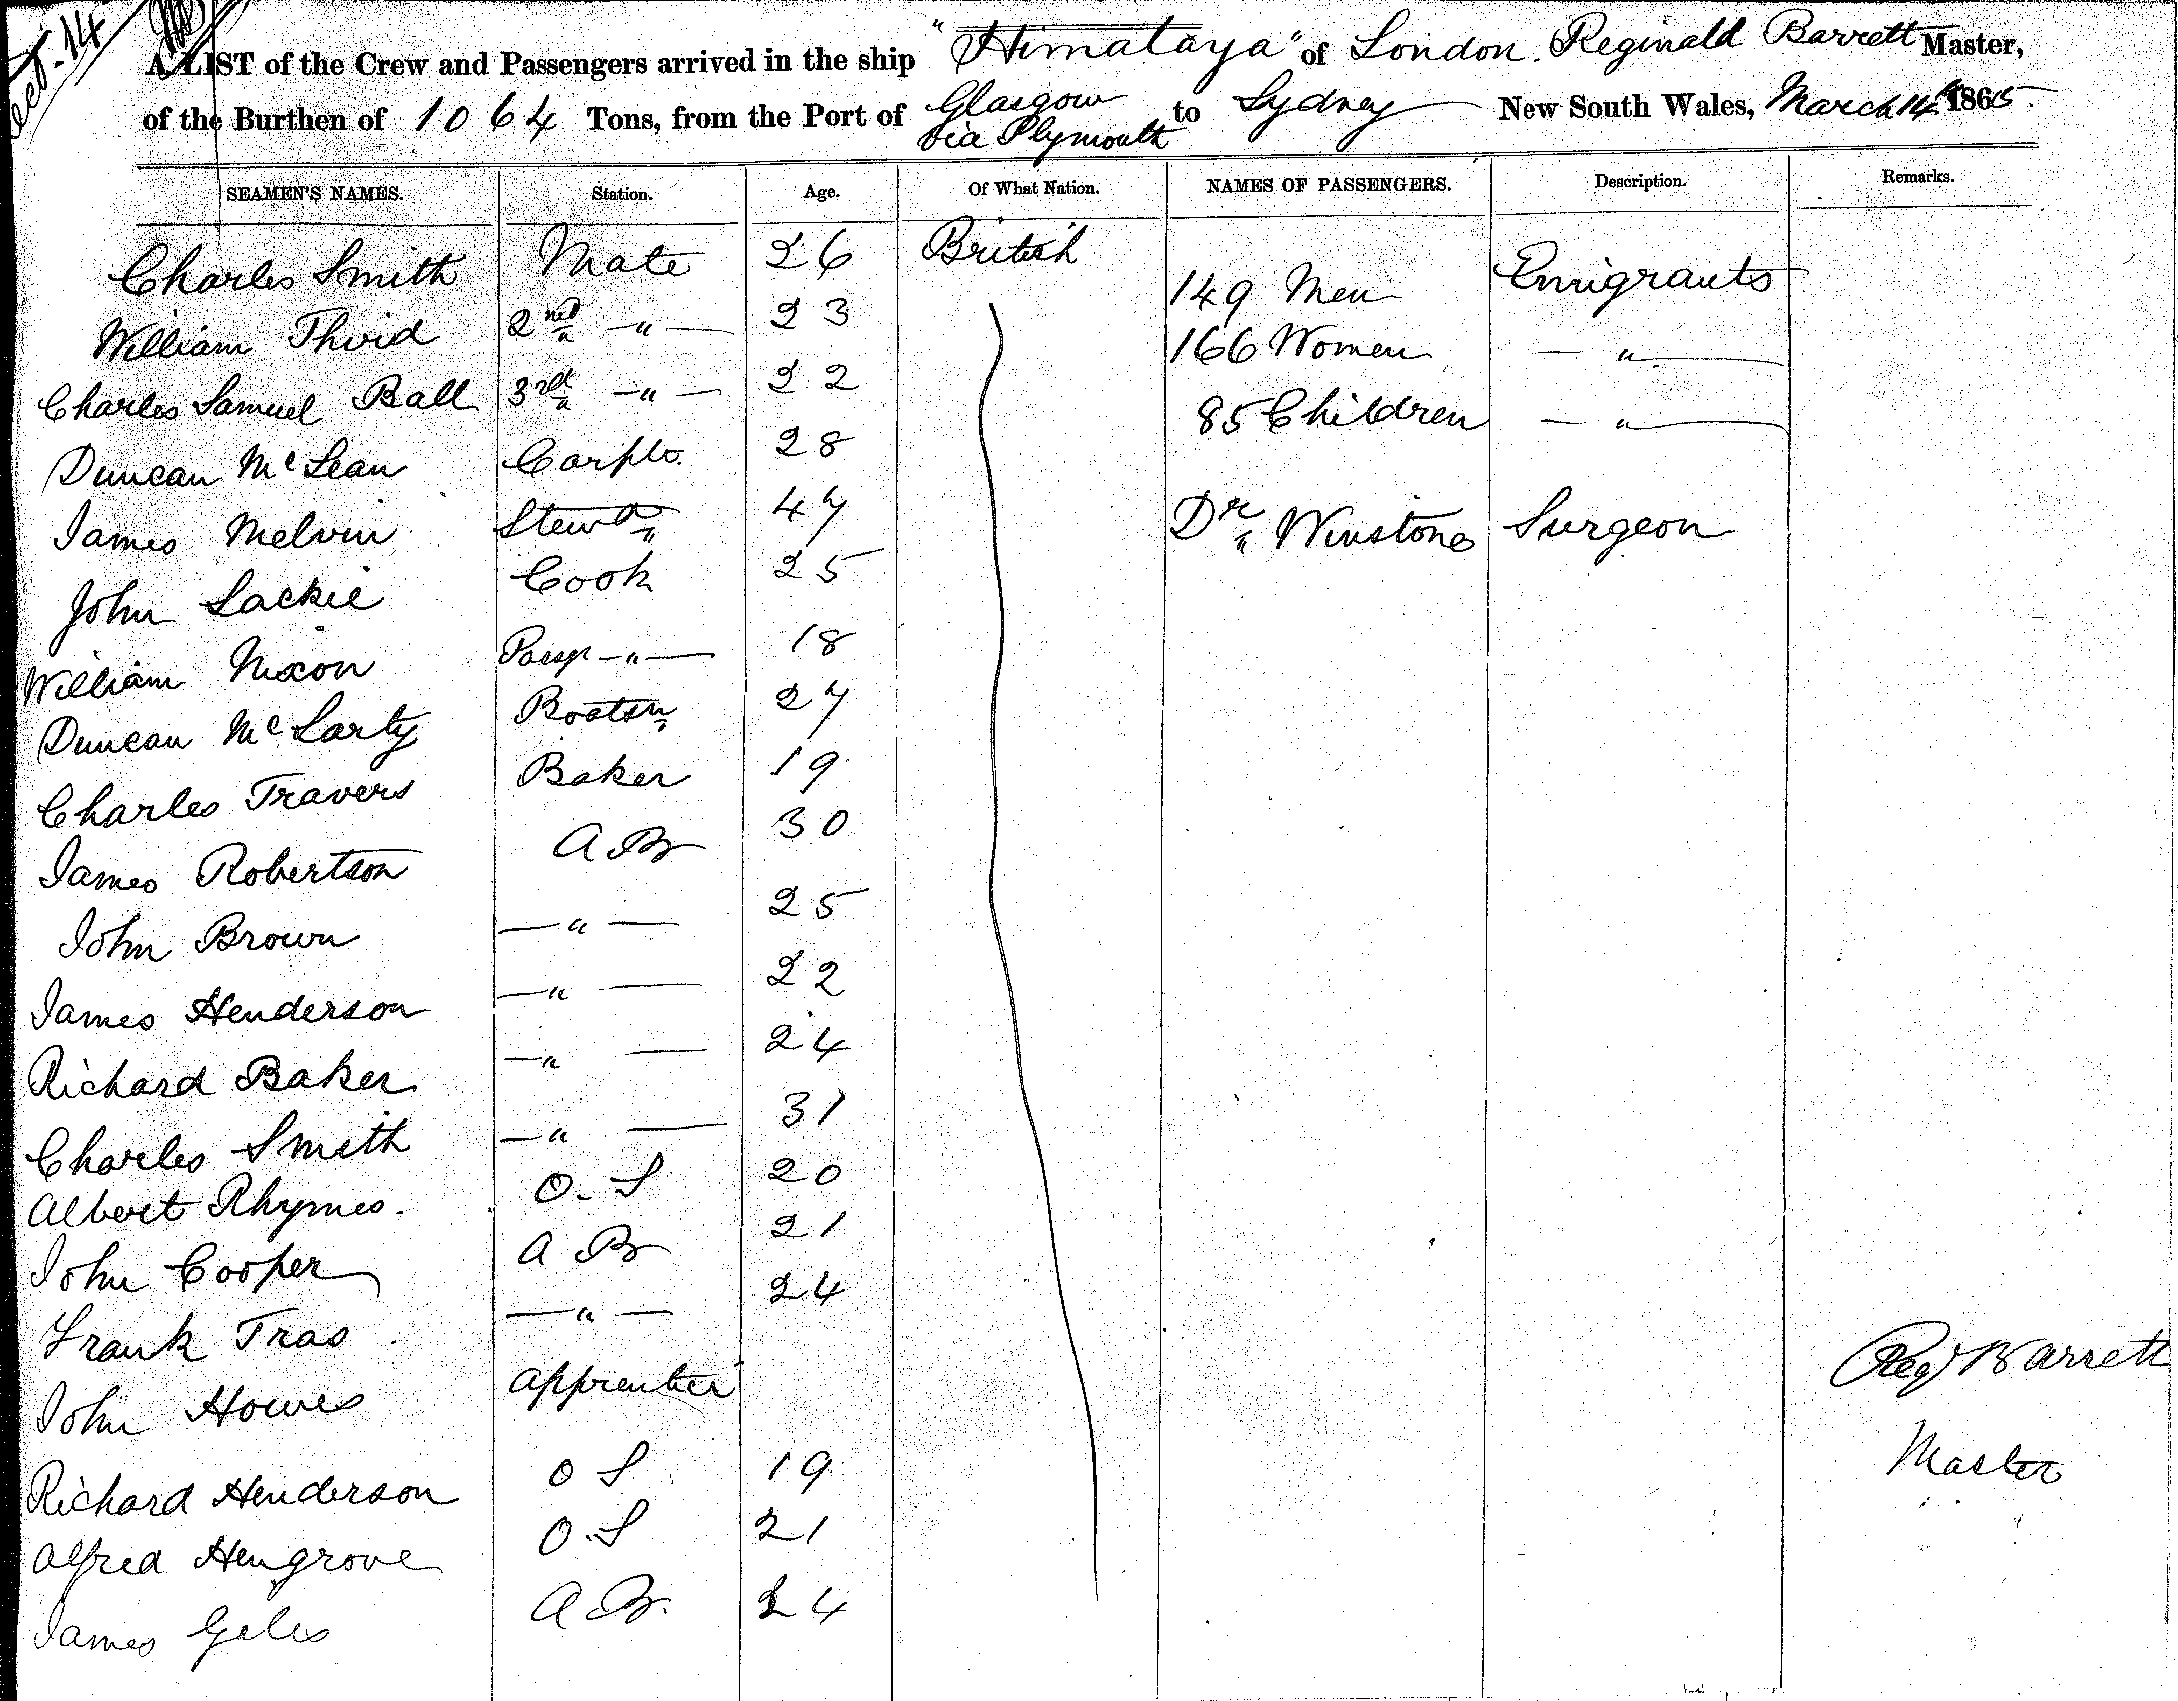 A LIST of the Crew and Passengers arrived in the ship "Himalaya" of London. Reginald Barrett Master,
of the Burthen of 1064 Tons, from the Port of Glasgow via Plymouth to Sydney New South Wales, March 14th 1865.
SEAMEN'S NAMES. Station. Age. Of What Nation. NAMES OF PASSENGERS. Description. Remarks.
Charles Smith Mate 26 British 149 Men Emigrants
William Thirid 2nd " 23 166 Women "
Charles Samuel Ball 3rd " 22 85 Children "
Duncan McLean Carptr. 28
James Melvin Stewd 47 Dr Winstone Surgeon
John Lackie Cook 25
William Nixon Passgr " 18
Duncan McLarty Boatsn 27
Charles Travers Baker 19
James Robertson A B 30
John Brown " 25
James Henderson " 22
Richard Baker " 24
Charles Smith " 31
Albert Rhymes. O. S 20
John Cooper A B 21
Frank Tras " 24
John Howes Apprentice
Richard Henderson O S 19
Alfred Hengrove O.S 21
James Geles A B. 24
Regd Barrett
Master